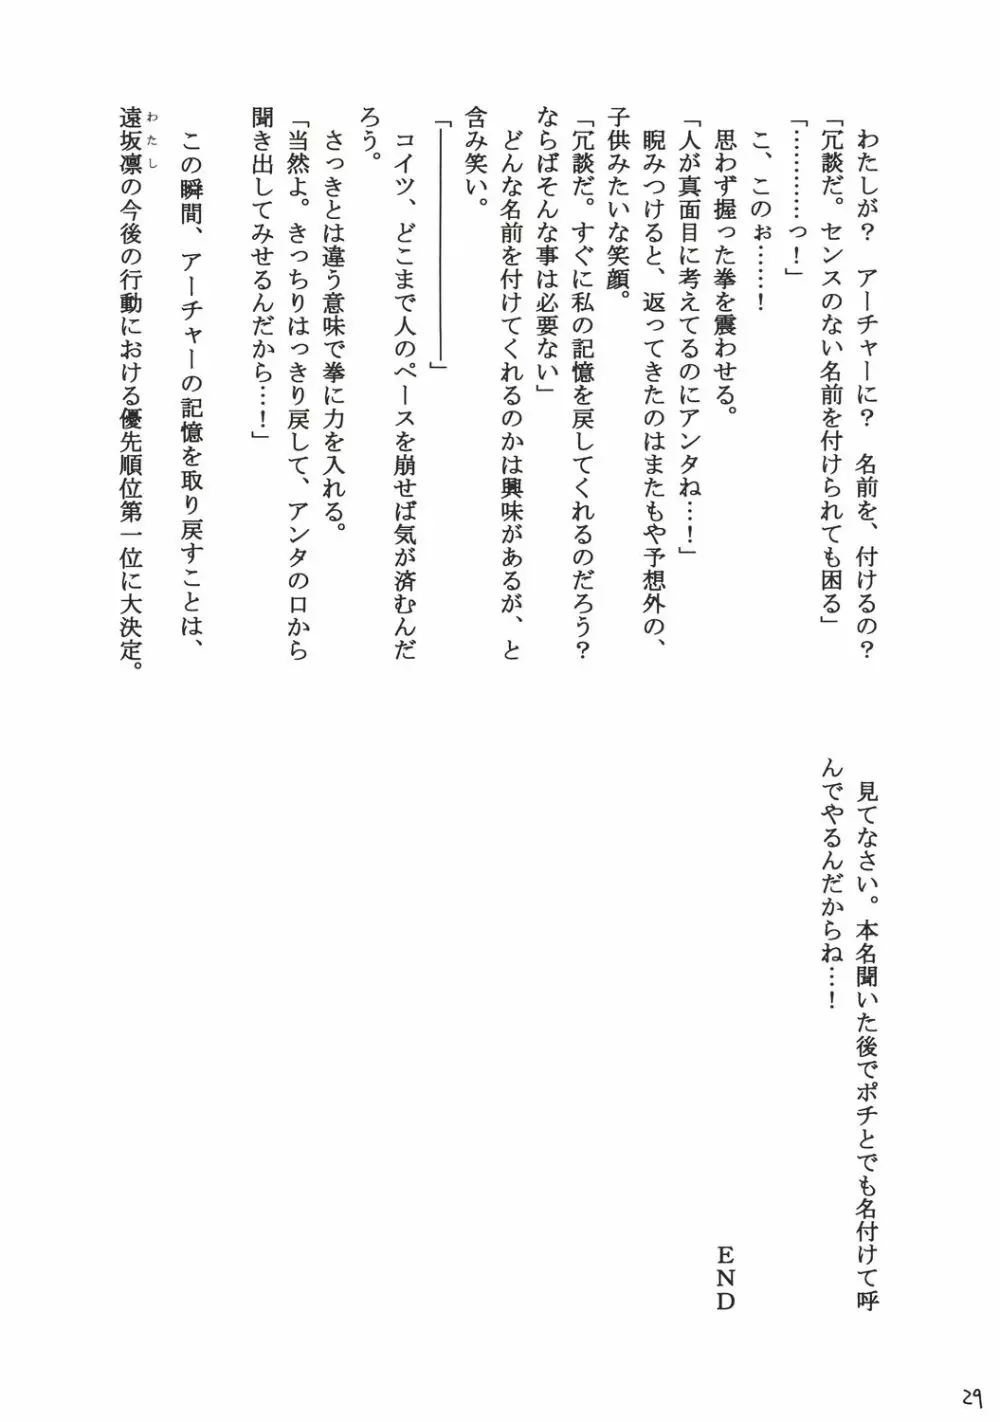 わたしが？　アーチャーに？　名前を、付けるの？
「冗談だ。センスのない名前を付けられても困る」
「…………っ！」
こ、このぉ……！
思わず握った拳を震わせる。
「人が真面目に考えてるのにアンタね…！」
睨みつけると、返ってきたのはまたもや予想外の、
子供みたいな笑顔。
「冗談だ。すぐに私の記憶を戻してくれるのだろう？
ならばそんな事は必要ない」
どんな名前を付けてくれるのかは興味があるが、と
含み笑い。
「――――――――――」
コイツ、どこまで人のペースを崩せば気が済むんだ
ろう。
さっきとは違う意味で拳に力を入れる。
「当然よ。きっちりはっきり戻して、アンタの口から
聞き出してみせるんだから…！」
この瞬間、アーチャーの記憶を取り戻すことは、
わたし
遠坂凛の今後の行動における優先順位第一位に大決定。
見てなさい。本名聞いた後でポチとでも名付けて呼
んでやるんだからね…！
END
29